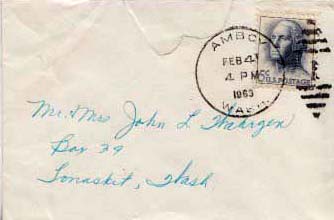 AMBOY
FEB 4
4 PM
1963
WASH.
5¢ U.S. POSTAGE
Mr. & Mrs John L
Box 39
Tonasket, Wash